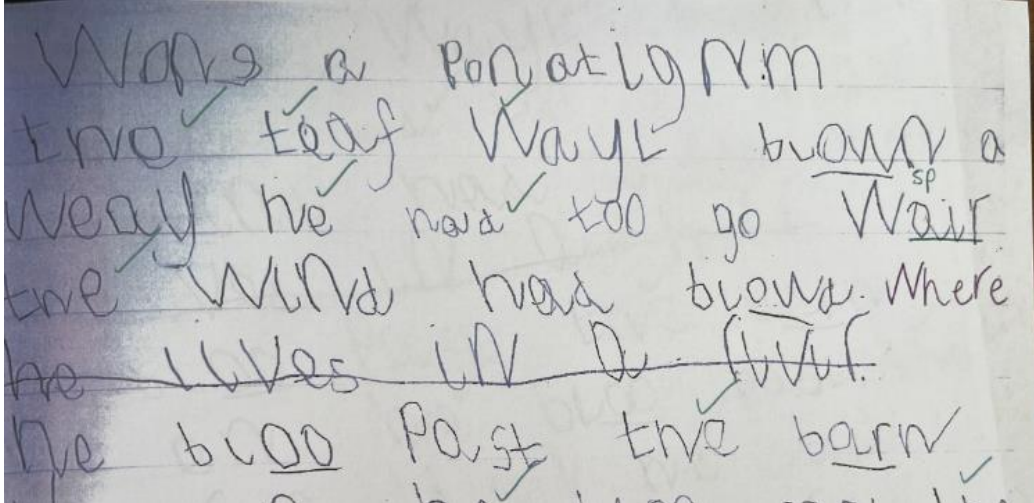 Wons a Pon at ignm
the leaf Wayl blown a
sp
Weay he had too go Wair
the Wind had blowd. Where
he lives in a
he bloo Past the barn